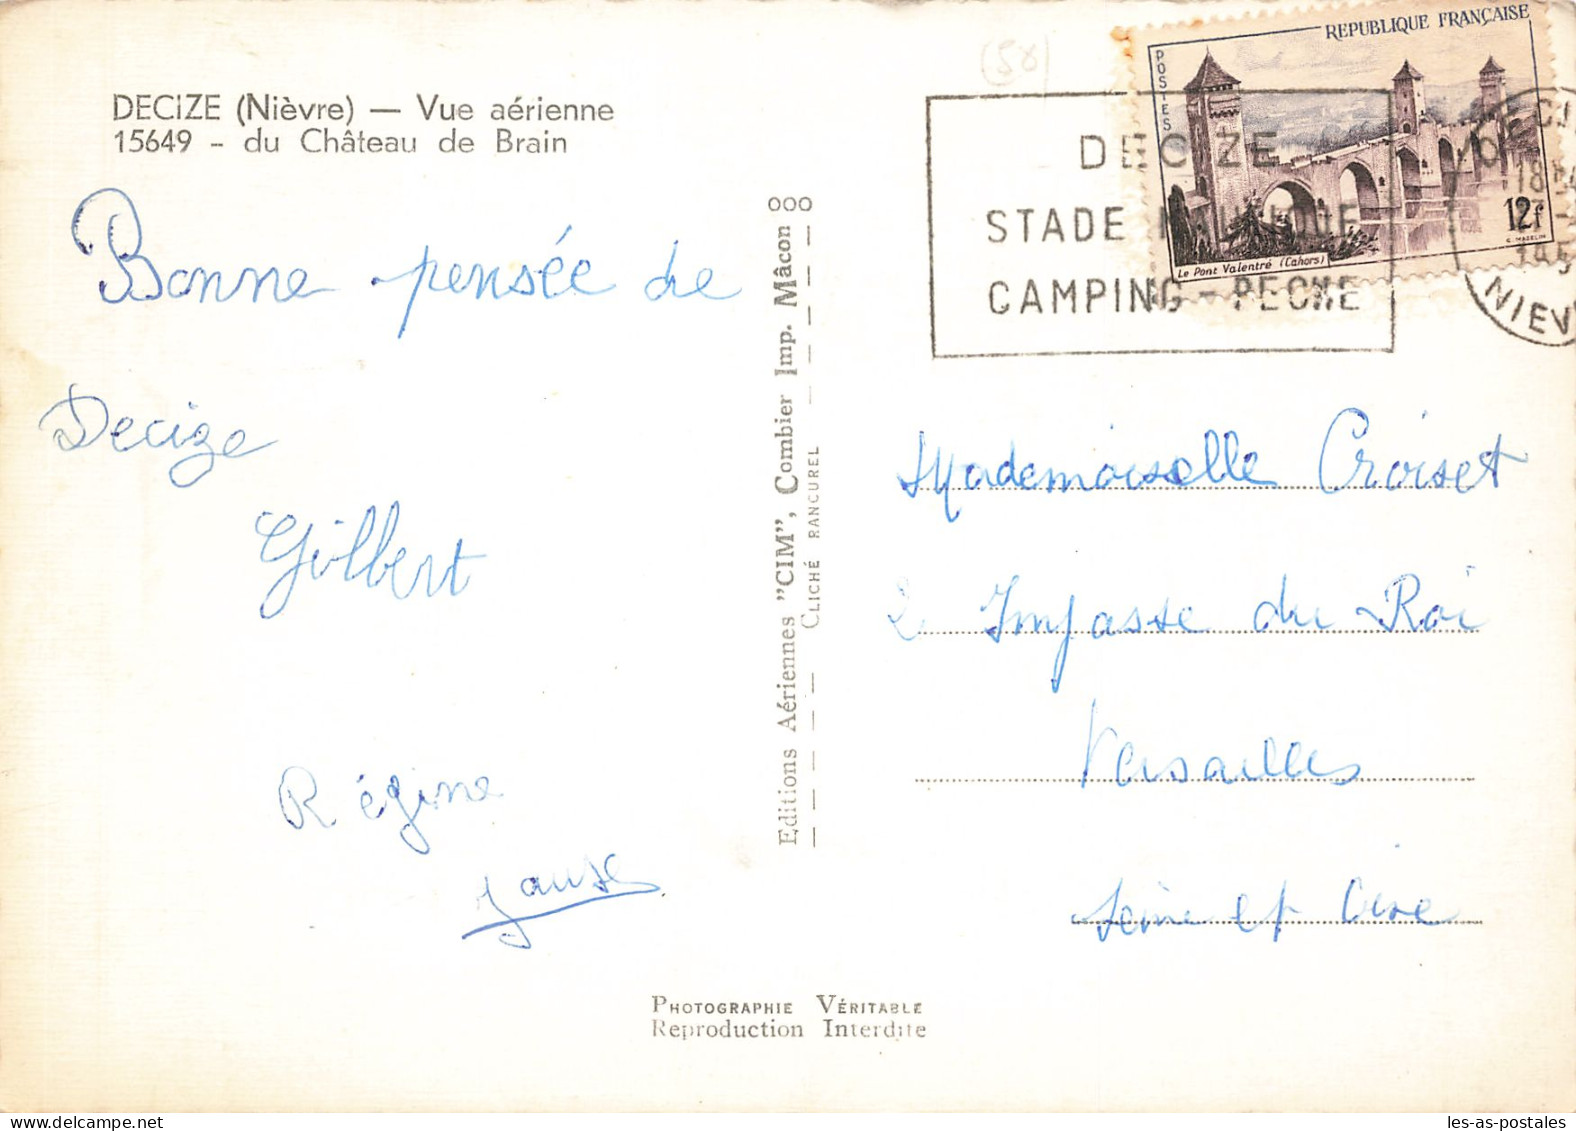 DECIZE (Nièvre) — Vue aérienne
15649 - du Château de Brain
Bonne pensée de
Decize
Gilbert
Régine
(58)
REPUBLIQUE FRANÇAISE
POSTES
12f
Le Pont Valentré (Cahors)
DECIZE
STADE NAUTIQUE
CAMPING - PECHE
18H
NIEV
000
Editions Aériennes "CIM", Combier Imp. Mâcon
CLICHÉ RANCUREL
Mademoiselle Croiset
2 Impasse du Roi
Versailles
Seine et Oise
PHOTOGRAPHIE VÉRITABLE
Reproduction Interdite
les-as-postales